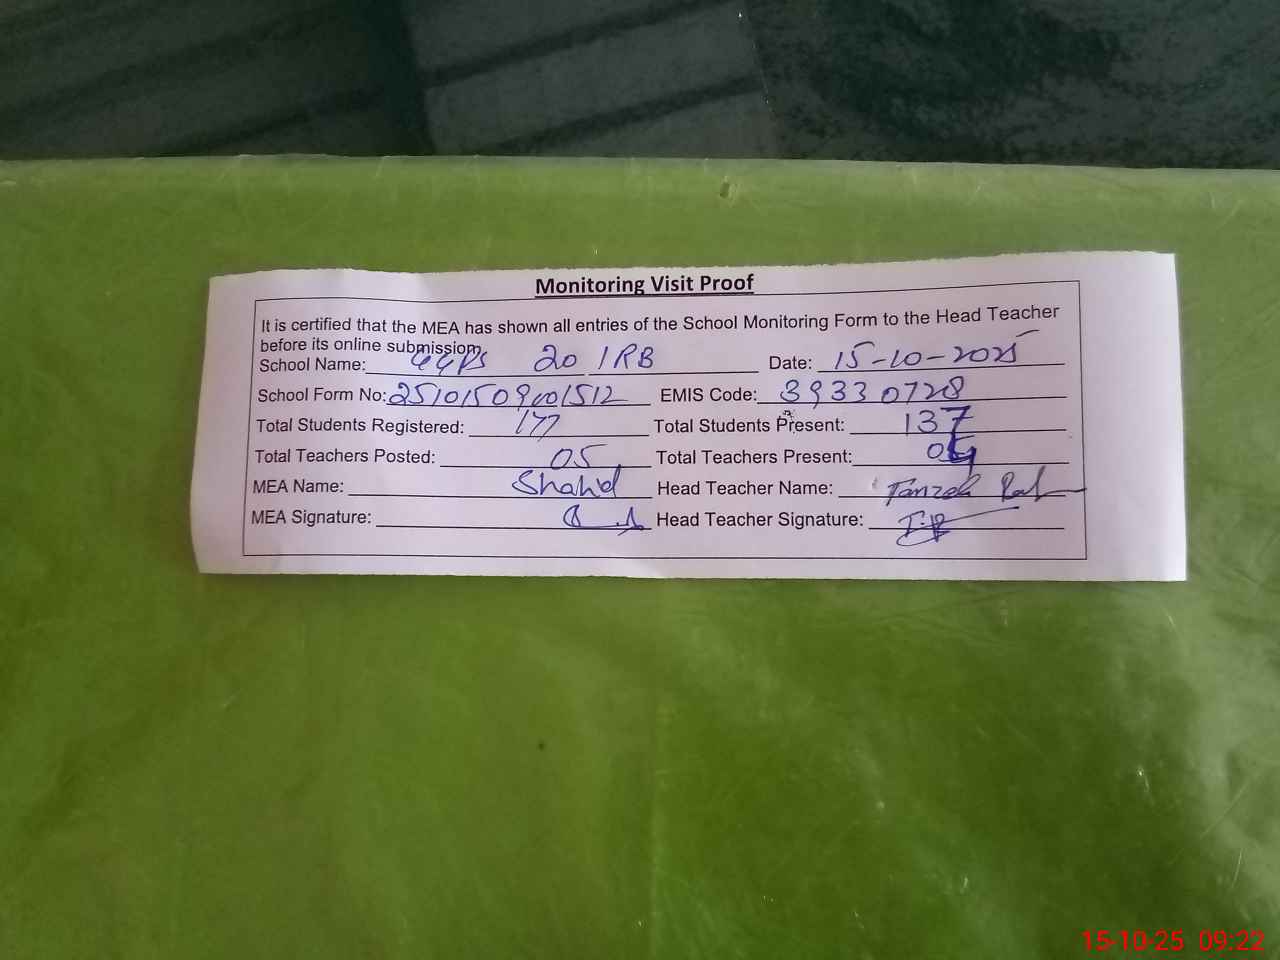 Monitoring Visit Proof
It is certified that the MEA has shown all entries of the School Monitoring Form to the Head Teacher
before its online submission.
School Name: GGPS 201RB Date: 15-10-2025
School Form No: EMIS Code: 39330728
Total Students Registered: 177 Total Students Present: 137
Total Teachers Posted: 05 Total Teachers Present:
MEA Name: Shahid Head Teacher Name:
MEA Signature: Head Teacher Signature:
15-10-25 09:22